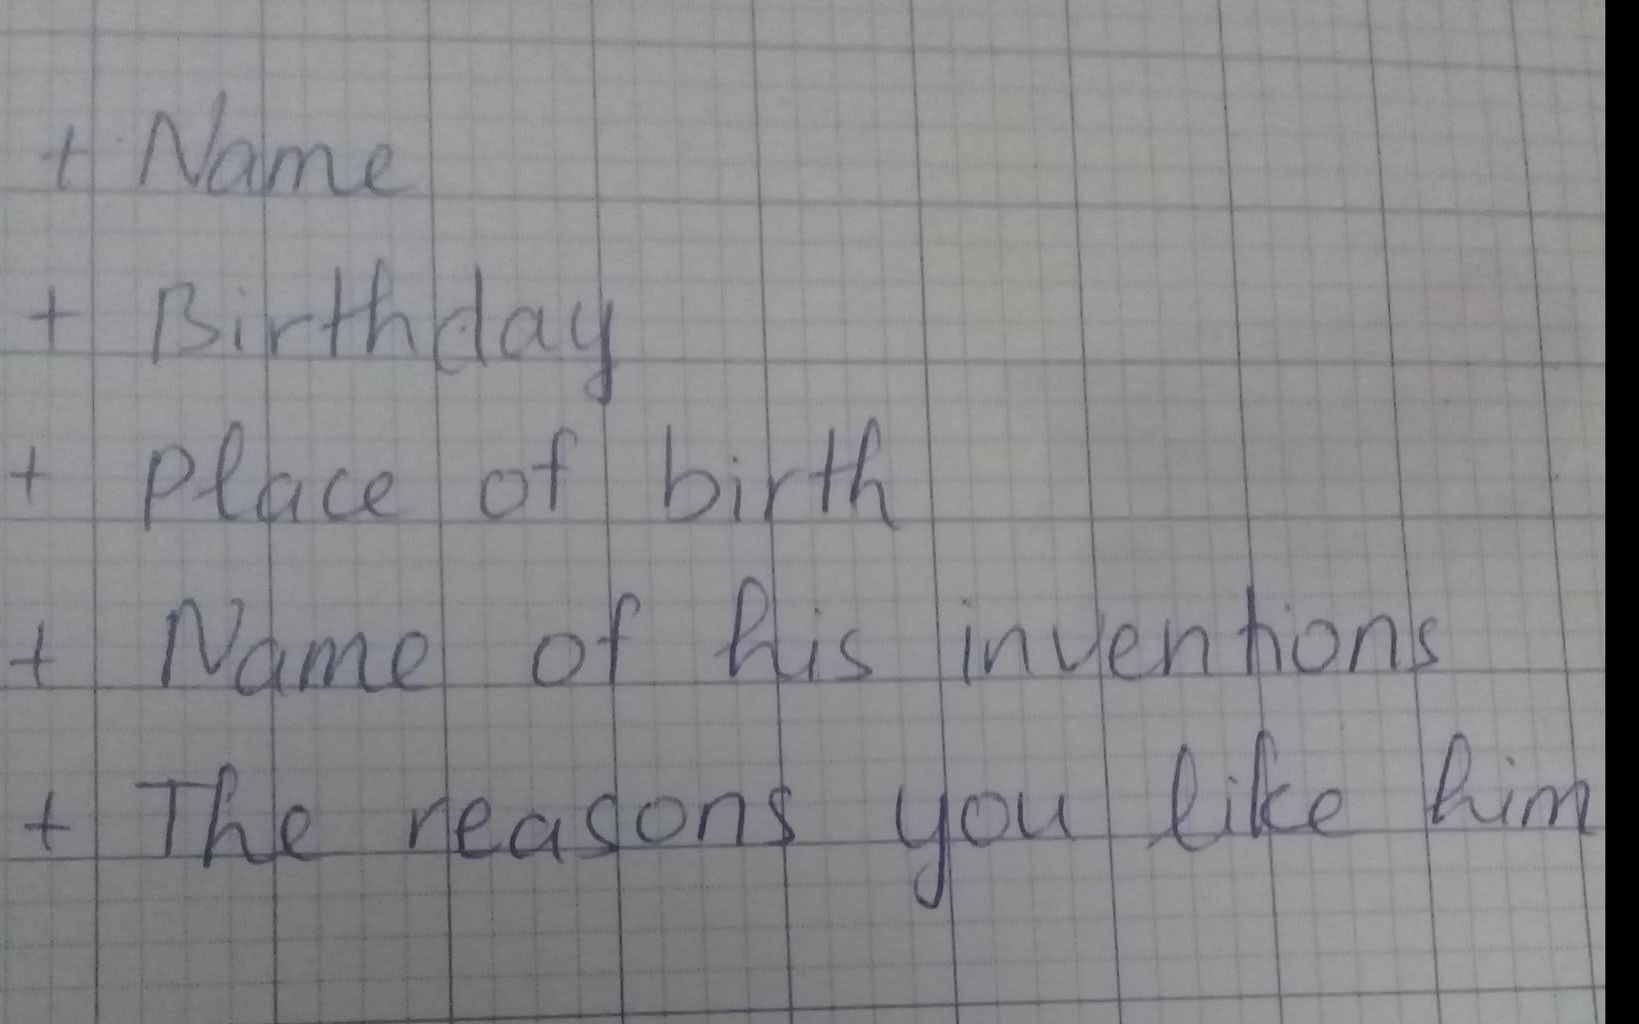 + Name
+ Birthday
+ place of birth
+ Name of his inventions
+ The reasons you like him